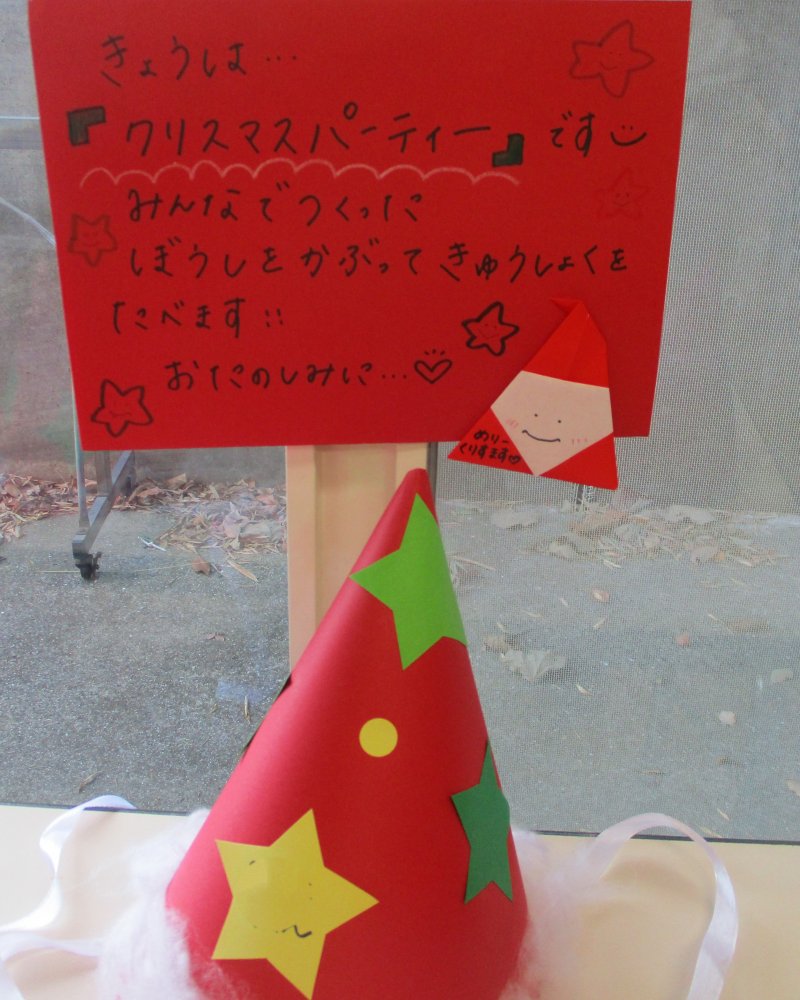 きょうは…
『クリスマスパーティー』です
みんなでつくった
ぼうしをかぶってきゅうしょくを
たべます!!
おたのしみに…♡
めりー
くりすます♡